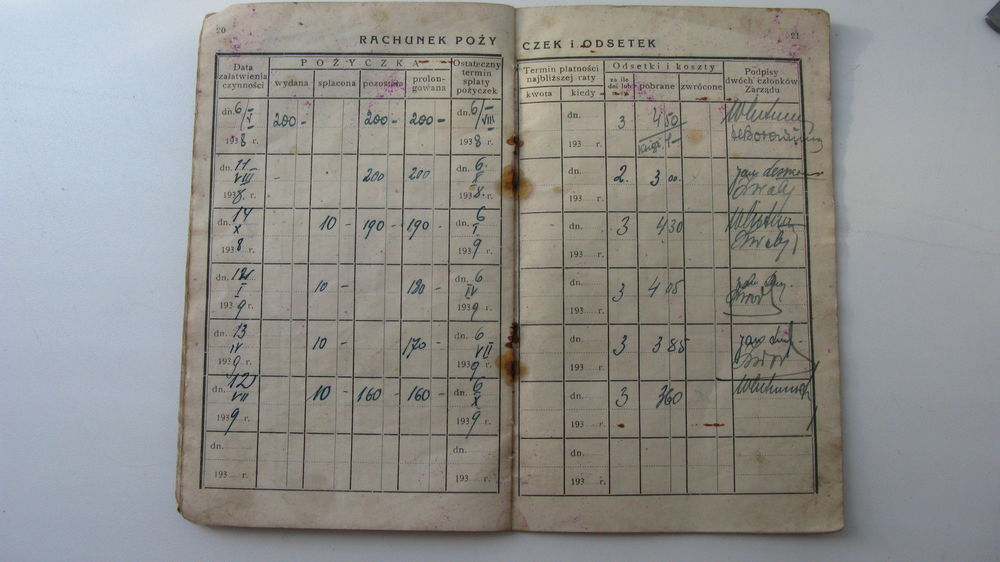 20
21
RACHUNEK POŻYCZEK i ODSETEK
Data załatwienia czynności
POŻYCZKA
wydana spłacona pozostała prolongowana
Ostateczny termin spłaty pożyczek
Termin płatności najbliższej raty
kwota kiedy
Odsetki i koszty
za ile dni lub pobrane zwrócone
Podpisy dwóch członków Zarządu
dn. 6/V 1938 r. 200 - 200 - 200 - dn. 6/VIII 1938 r. dn. 193 r. 3 4 50
dn. 11 VIII 1938 r. - 200 200 dn. 6. X 1938. r. dn. 193 r. 2. 3 00.
dn. 14 X 1938 r. 10 - 190 - 190 - dn. 6 I 1939 r. dn. 193 r. 3 4 30
dn. 12 I 1939 r. 10 - 180 - dn. 6 IV 1939 r. dn. 193 r. 3 4 05
dn. 13 IV 1939 r. 10 - 170 - dn. 6 VII 1939 r. dn. 193 r. 3 3 85
dn. 12 VII 1939 r. 10 - 160 - 160 - dn. 6 X 1939 r. dn. 193 r. 3 3 60
dn. 193 r. dn. 193 r. dn. 193 r.